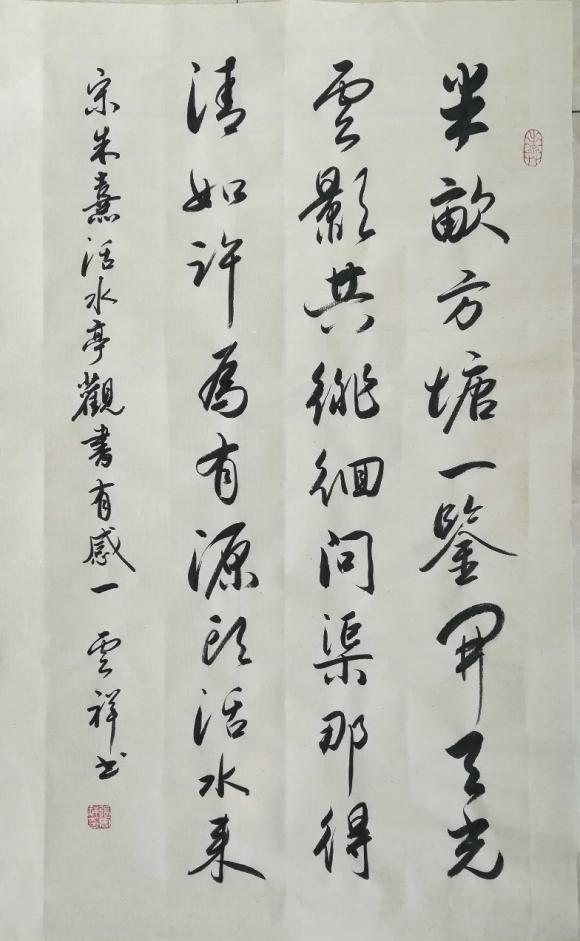 半畝方塘一鑒開天光
雲影共徘徊問渠那得
清如許為有源頭活水來
宋朱熹活水亭觀書有感一 雲祥書